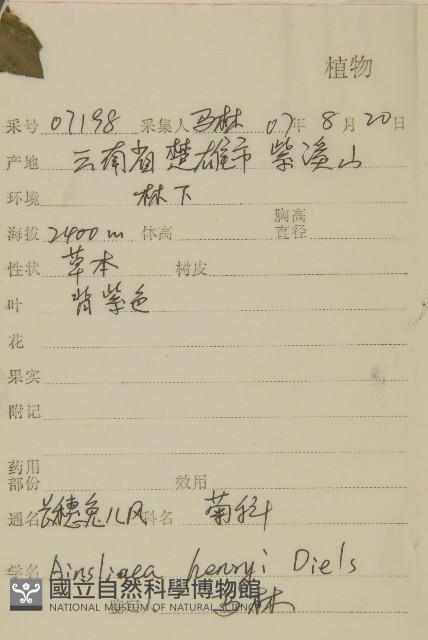 植物
采号 07198 采集人 马林 07年 8月 20日
产地 云南省楚雄市 紫溪山
环境 林下
海拔 2400m 体高 胸高直径
性状 草本 树皮
叶 背紫色
花
果实
附记
药用部份 效用
通名 长穗兔儿风 科名 菊科
学名 Ainsliaea henryi Diels
國立自然科學博物館
NATIONAL MUSEUM OF NATURAL SCIENCE
马林